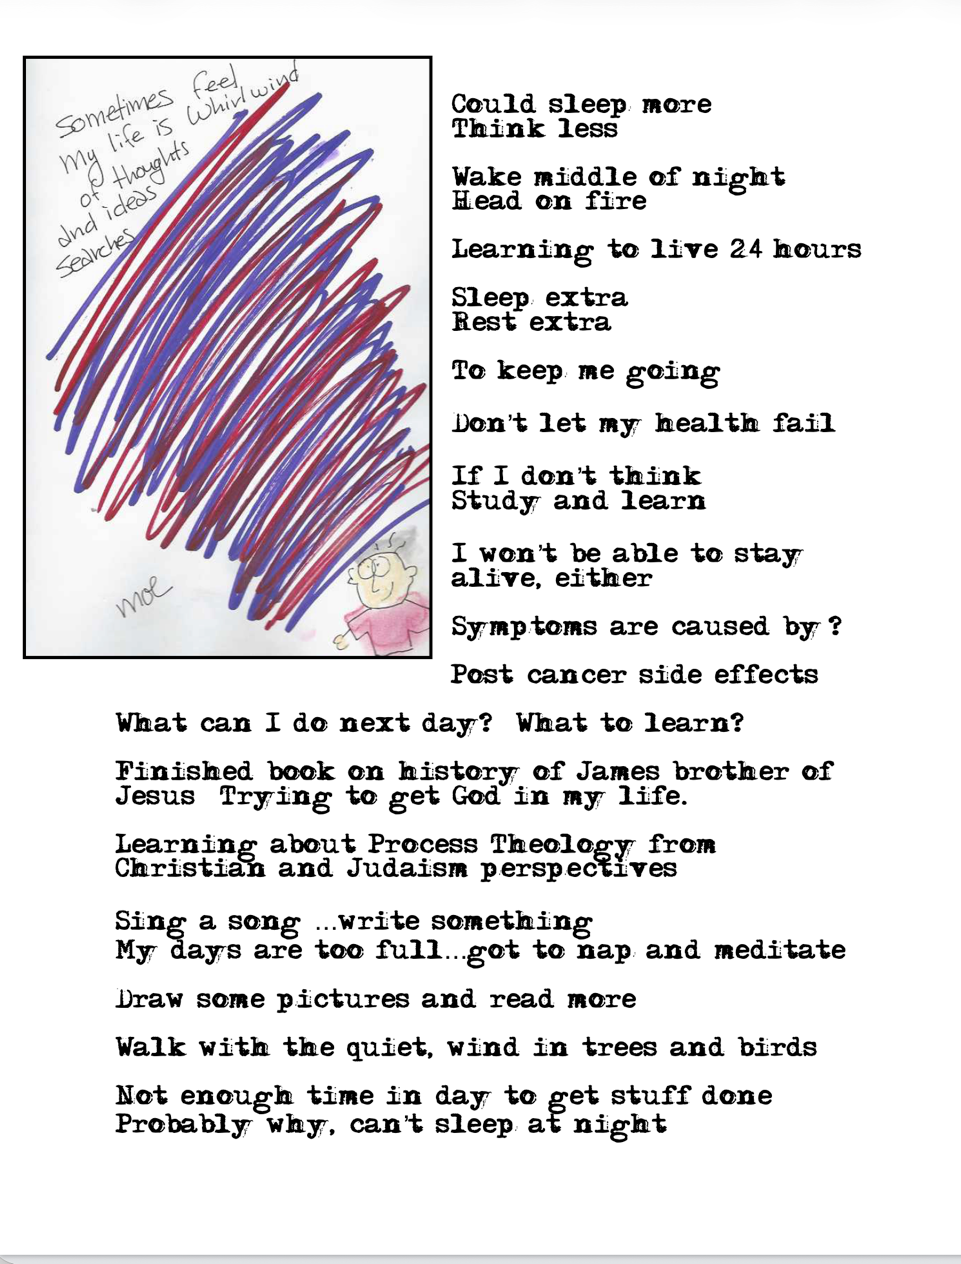 Sometimes feel
my life is whirlwind
of thoughts
and ideas
searches
moe
Could sleep more
Think less
Wake middle of night
Head on fire
Learning to live 24 hours
Sleep extra
Rest extra
To keep me going
Don't let my health fail
If I don't think
Study and learn
I won't be able to stay
alive, either
Symptoms are caused by ?
Post cancer side effects
What can I do next day?  What to learn?
Finished book on history of James brother of
Jesus  Trying to get God in my life.
Learning about Process Theology from
Christian and Judaism perspectives
Sing a song ...write something
My days are too full...got to nap and meditate
Draw some pictures and read more
Walk with the quiet, wind in trees and birds
Not enough time in day to get stuff done
Probably why, can't sleep at night